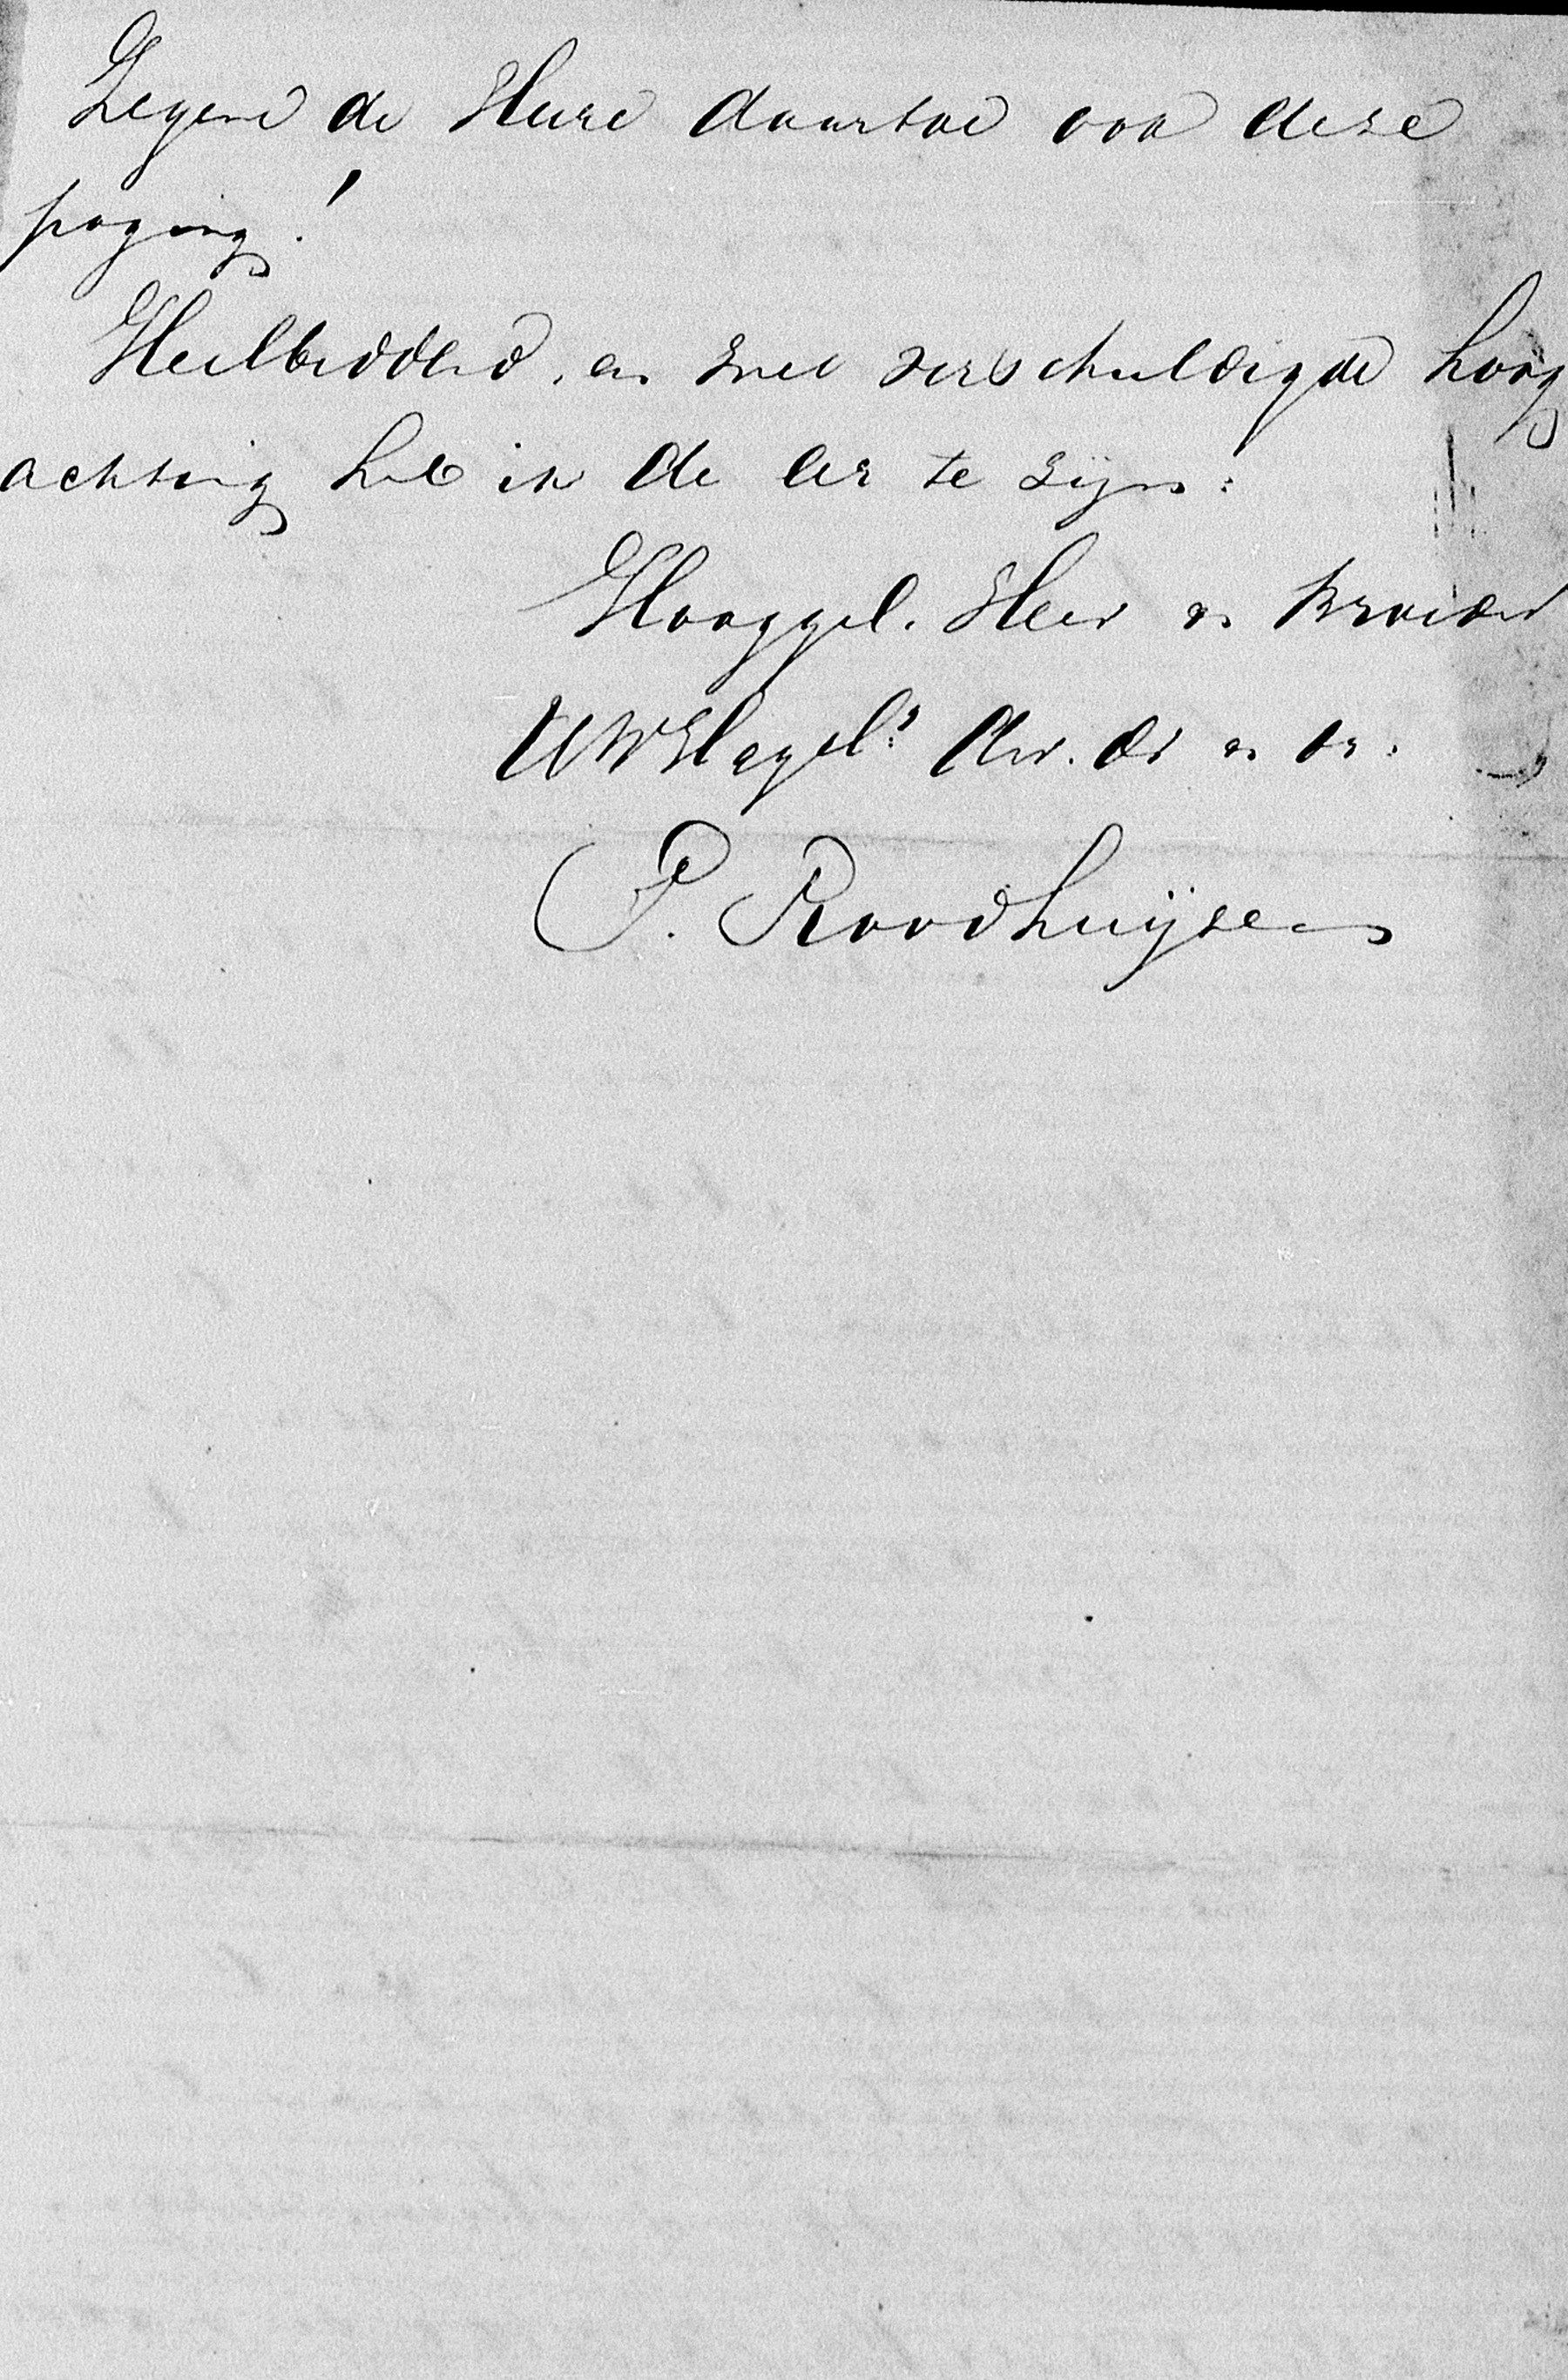 Zegene de Heere daartoe ook deze
poging!
Heilbiddend, en met verschuldigde hoog
achting heb ik de eer te zijn:
Hooggel. Heer en Broeder
UWHgel.s dw. dr en br.
P. Roodhuyzen